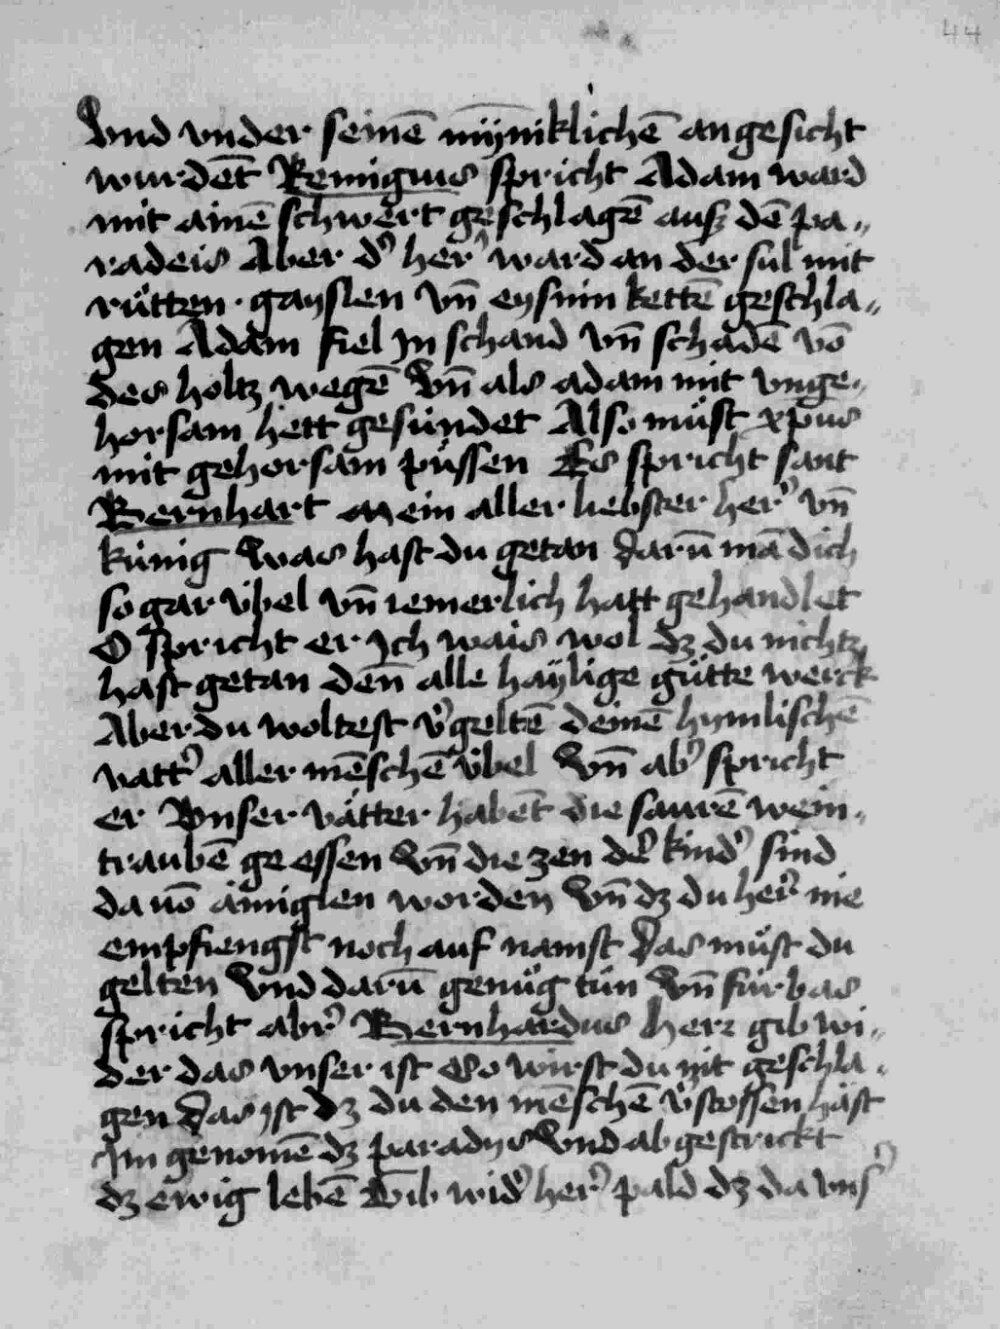 44
Vnd vnder seinē mÿniklichē angesicht
wurdēt Remigius spricht Adam ward
mit ainē schwert geschlagē ausz dē pa„
radeis Aber d' her' ward an der sul mit
růtten · gayslen vn̄ eysnin kettē geschla„
gen Adam fiel Jn schand vn̄ schadē vō
des holtz wegē Vn̄ als adam mit vnge„
horsam hett gesündet Also můst xp̄us
mit gehorsam püssen Es spricht sant
Bernhart Mein aller liebster her' vn̄
künig Was hast du getan darū mā dich
so gar übel vn̄ iemerlich hatt gehandlet
O spricht er Jch wais wol dz du nichtz
hast getan denn̄ alle haÿlige gůtte werck
Aber du woltest v'geltē deinē hymlischē
vatt' aller mēschē übel Vn̄ ab' spricht
er Vnser vätter habēt die saurē wein„
traubē ge essen Vn̄ die zen de' kind' sind
da vō worden Vn̄ dz du her' nie
empfiengst noch auf namst Das můst du
gelten Vnd darū genůg tůn Vn̄ fürbas
spricht abr' Bernhardus Herr gib wi„
der das vnser ist So wirst du nit geschla„
gen Das jst dz du den mēschē v'stossen hast
Jm genomē dz paradys Vnd ab gestrickt
dz ewig lebē Gib wid' her' pald dz da vns'